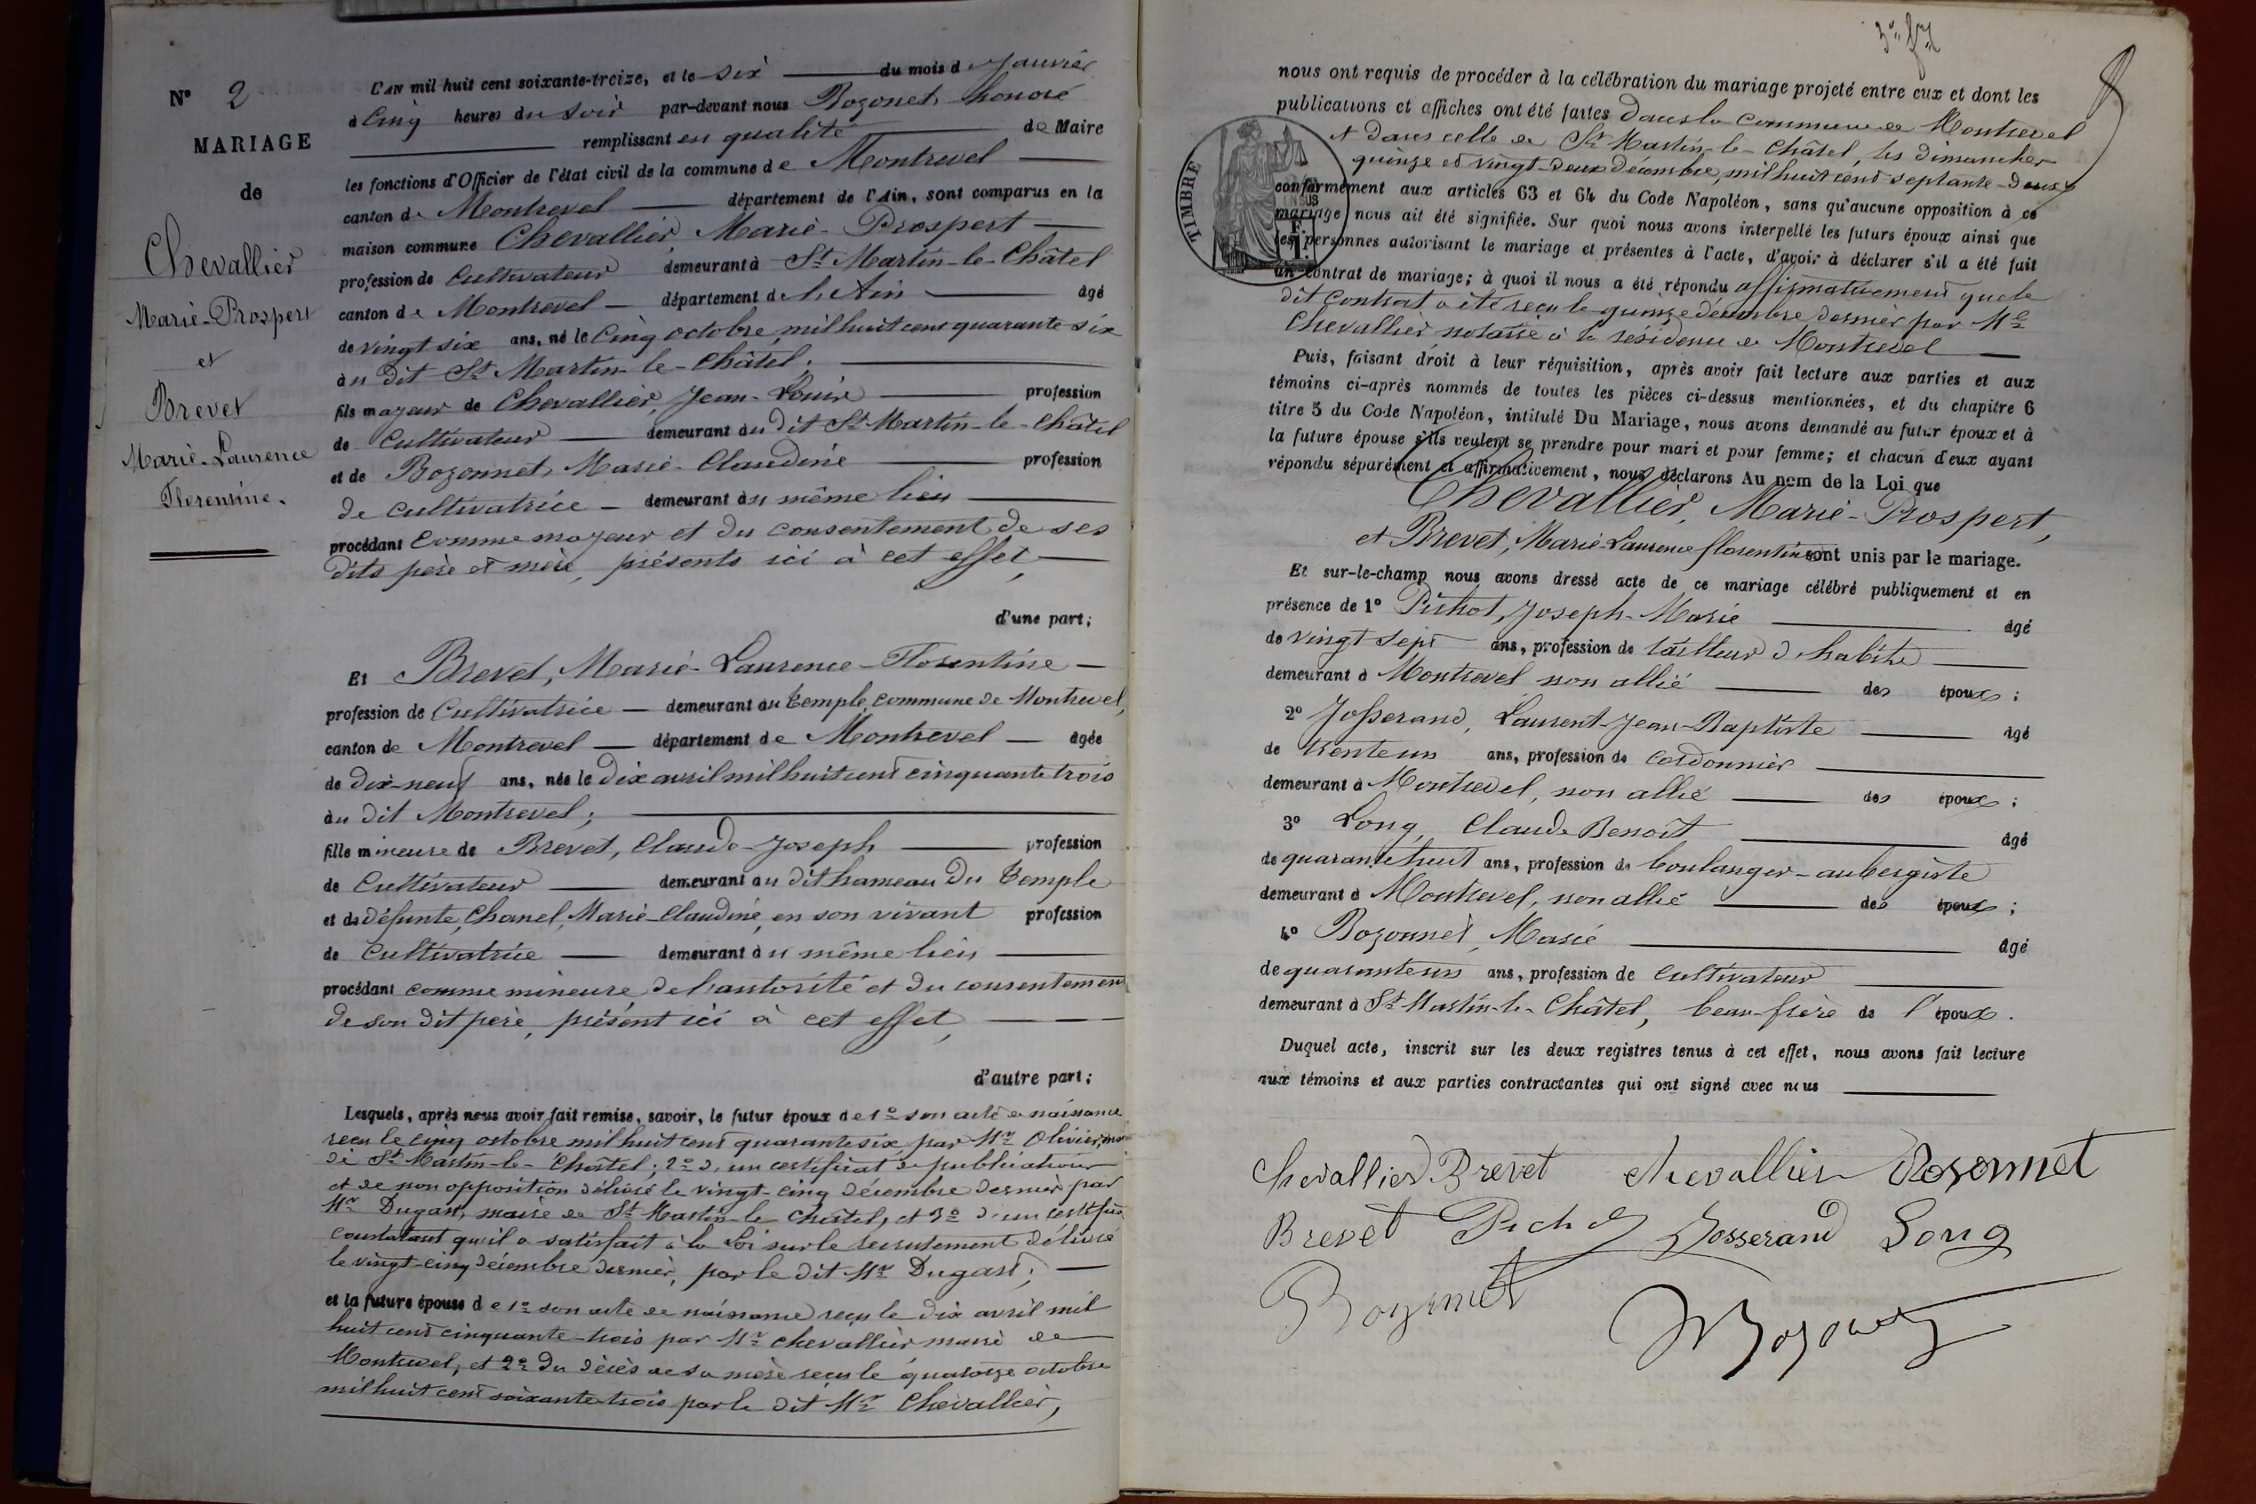 N° 2
MARIAGE
de
Chevallier
Marie-Prospert
et
Brevet
Marie-Laurence
Florentine.
L'AN mil huit cent soixante-treize, et le six du mois de Janvier
à Cinq heures du Soir par-devant nous Bozonet, honoré
remplissant en qualité de Maire
les fonctions d'Officier de l'état civil de la commune de Montrevel
canton de Montrevel département de l'Ain, sont comparus en la
maison commune Chevallier, Marie-Prospert
profession de Cultivateur demeurant à St Martin-le-Châtel
canton de Montrevel département de l'Ain âgé
de vingt six ans, né le Cinq octobre, mil huit cent quarante six
au dit St Martin-le-Châtel;
fils majeur de Chevallier, Jean-Louis profession
de Cultivateur demeurant au dit St Martin-le-Châtel
et de Bozonnet, Marie-Claudine profession
de cultivatrice demeurant au même lieu
procédant Comme majeur et du consentement de ses
dits père et mère, présents ici à cet effet,
d'une part;
Et Brevet, Marie-Laurence-Florentine
profession de Cultivatrice demeurant au temple, commune de Montrevel,
canton de Montrevel département de Montrevel âgée
de dix-neuf ans, née le dix avril mil huit cent cinquante trois
au dit Montrevel;
fille mineure de Brevet, Claude-Joseph profession
de Cultivateur demeurant au dit hameau du Temple
et de défunte, Chanel, Marie-Claudine, en son vivant profession
de Cultivatrice demeurant au même lieu
procédant comme mineure, de l'autorité et du consentement
de son dit père, présent ici à cet effet,
d'autre part;
Lesquels, après nous avoir fait remise, savoir, le futur époux de 1° son acte de naissance
reçu le cinq octobre mil huit cent quarante six, par Mr Olivier,
de St Martin-le-Châtel; 2° d'un certificat de publication
et de non opposition délivré le vingt-cinq décembre dernier par
Mr Dugast, maire de St Martin-le Châtel, et 3° d'un certificat
constatant qu'il a satisfait à la Loi sur le recrutement délivré
le vingt-cinq décembre dernier, par le dit Mr Dugast;
et la future épouse de 1° son acte de naissance reçu le dix avril mil
huit cent cinquante-trois par Mr Chevallier maire de
Montrevel, et 2° du décès de sa mère reçu le quatorze octobre
mil huit cent soixante trois par le dit Mr Chevallier,
nous ont requis de procéder à la célébration du mariage projeté entre eux et dont les
publications et affiches ont été faites dans la commune de Montrevel
et dans celle de St Martin-le-Châtel, les dimanches
quinze et vingt-deux décembre, mil huit cent septante-deux
TIMBRE
conformément aux articles 63 et 64 du Code Napoléon, sans qu'aucune opposition à ce
mariage nous ait été signifiée. Sur quoi nous avons interpellé les futurs époux ainsi que
les personnes autorisant le mariage et présentes à l'acte, d'avoir à déclarer s'il a été fait
un contrat de mariage; à quoi il nous a été répondu affirmativement que le
dit Contrat a été reçu le quinze décembre dernier par Me
Chevallier notaire à la résidence de Montrevel
Puis, faisant droit à leur réquisition, après avoir fait lecture aux parties et aux
témoins ci-après nommés de toutes les pièces ci-dessus mentionnées, et du chapitre 6
titre 5 du Code Napoléon, intitulé Du Mariage, nous avons demandé au futur époux et à
la future épouse s'ils veulent se prendre pour mari et pour femme; et chacun d'eux ayant
répondu séparément et affirmativement, nous déclarons Au nom de la Loi que
Chevallier, Marie-Prospert,
et Brevet, Marie-Laurence florentine sont unis par le mariage.
Et sur-le-champ nous avons dressé acte de ce mariage célébré publiquement et en
présence de 1° Pichot, Joseph-Marie âgé
de vingt-sept ans, profession de tailleur d'habits
demeurant à Montrevel non allié des époux;
2° Josserand, Laurent-Jean-Baptiste âgé
de trente un ans, profession de cordonnier
demeurant à Montrevel, non allié des époux;
3° Long, Claude Benoît âgé
de quarante huit ans, profession de boulanger-aubergiste
demeurant à Montrevel, non allié des époux;
4° Bozonnet, Marie âgé
de quarante un ans, profession de Cultivateur
demeurant à St Martin-le-Châtel, beau-frère de l'époux.
Duquel acte, inscrit sur les deux registres tenus à cet effet, nous avons fait lecture
aux témoins et aux parties contractantes qui ont signé avec nous
Chevallier Brevet Chevallier Bozonnet
Brevet Pichot Josserand Long
Bozonnet Bozonet